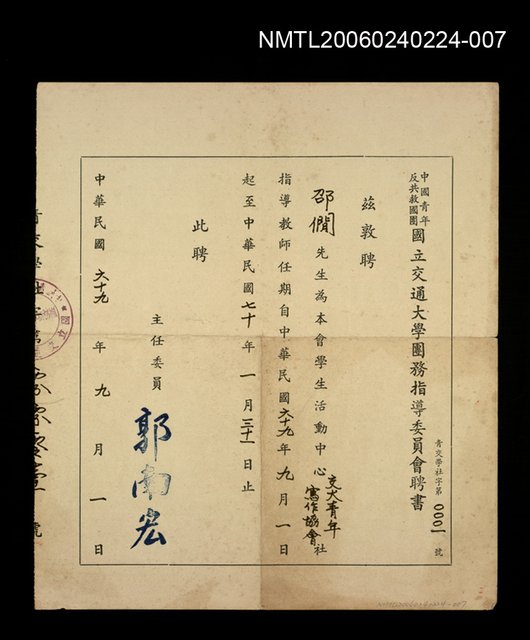 NMTL20060240224-007
中國青年
反共救國團
國立交通大學團務指導委員會聘書
青交學社字第0001號
茲敦聘
邵僩先生為本會學生活動中心交大青年寫作協會社
指導教師任期自中華民國六十九年九月一日
起至中華民國七十年一月三十一日止
此聘
主任委員
郭南宏
中華民國六十九年九月一日
NMTL20060240224-007